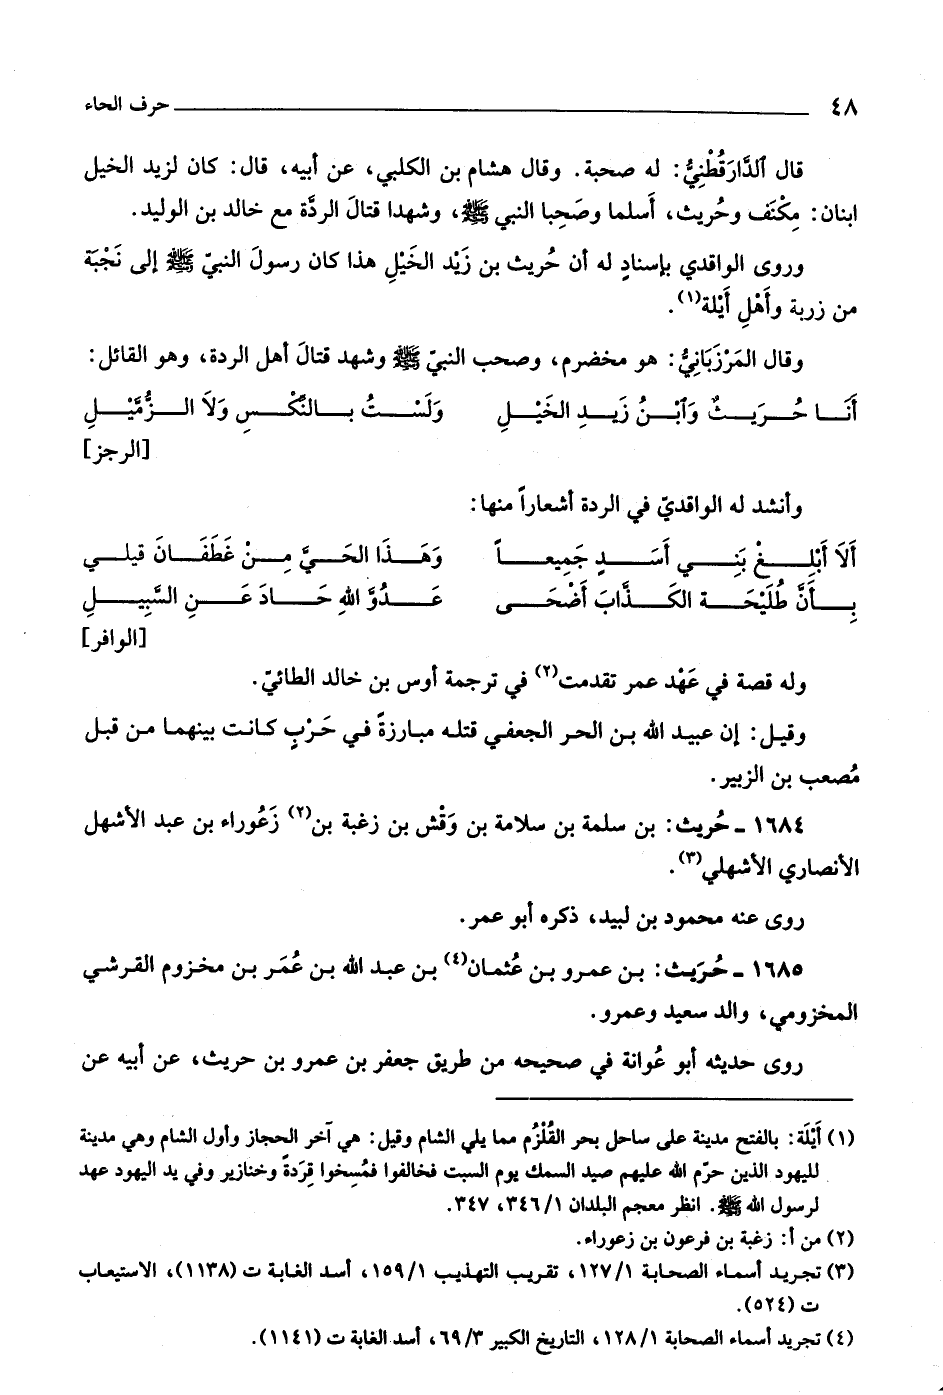 ٤٨ حرف الحاء
قال ٱلدَّارَقُطْنِيُّ: له صحبة. وقال هشام بن الكلبي، عن أبيه، قال: كان لزيد الخيل
ابنان: مِكْنَف وحُريث، أَسلما وصَحِبا النبي ﷺ، وشهدا قتالَ الردَّة مع خالد بن الوليد.
وروى الواقدي بإسنادٍ له أن حُريث بن زَيْد الخَيْلِ هذا كان رسولَ النبيّ ﷺ إلى نَجْبَة
من زربة وأَهْلِ أَيْلة(١).
وقال المَرْزَبَانِيُّ: هو مخضرم، وصحب النبيّ ﷺ وشهد قتالَ أهل الردة، وهو القائل:
أَنَا حُرَيثٌ وَٱبْنُ زَيدِ الخَيْلِ وَلَسْتُ بِالنِّكْسِ وَلَا الزُّمَّيْلِ
[الرجز]
وأنشد له الواقديّ في الردة أشعاراً منها:
أَلَا أَبْلِغْ بَنِي أَسَدٍ جَمِيعاً وَهَذَا الحَيَّ مِنْ غَطَفَانَ قيلي
بِأَنَّ طُلَيْحَةَ الكَذَّابَ أَضْحَى عَدُوَّ اللهِ حَادَ عَنِ السَّبِيلِ
[الوافر]
وله قصة في عَهْد عمر تقدمت(٢) في ترجمة أوس بن خالد الطائيّ.
وقيل: إن عبيد الله بن الحر الجعفي قتله مبارزةً في حَرْبٍ كانت بينهما من قبل
مُصعب بن الزبير.
١٦٨٤ ـ حُريث: بن سلمة بن سلامة بن وَقْش بن زغبة بن(٢) زَعُوراء بن عبد الأشهل
الأنصاري الأشهلي(٣).
روى عنه محمود بن لبيد، ذكره أبو عمر.
١٦٨٥ ـ حُرَيث: بن عمرو بن عُثمان(٤) بن عبد الله بن عُمَر بن مخزوم القرشي
المخزومي، والد سعيد وعمرو.
روى حديثه أبو عُوانة في صحيحه من طريق جعفر بن عمرو بن حريث، عن أبيه عن
(١) أَيْلَة: بالفتح مدينة على ساحل بحر القُلْزُم مما يلي الشام وقيل: هي آخر الحجاز وأول الشام وهي مدينة
لليهود الذين حرّم الله عليهم صيد السمك يوم السبت فخالفوا فمُسِخوا قِرَدةً وخنازير وفي يد اليهود عهد
لرسول الله ﷺ. انظر معجم البلدان ٣٤٦/١، ٣٤٧.
(٢) من أ: زغبة بن فرعون بن زعوراء.
(٣) تجريد أسماء الصحابة ١٢٧/١، تقريب التهذيب ١٥٩/١، أسد الغابة ت (١١٣٨)، الاستيعاب
ت (٥٢٤).
(٤) تجريد أسماء الصحابة ١٢٨/١، التاريخ الكبير ٦٩/٣، أسد الغابة ت (١١٤١).